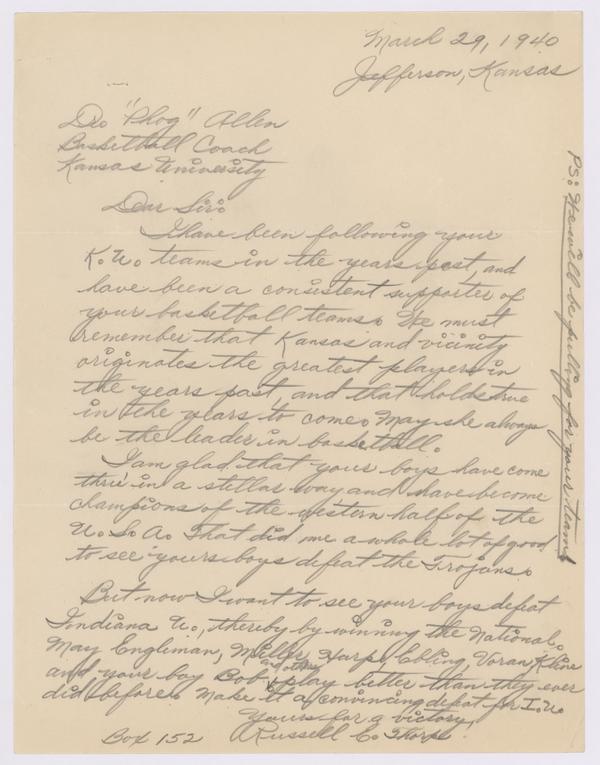 March 29, 1940
Jefferson, Kansas
Dr. "Phog" Allen
Basketball Coach
Kansas University
Dear Sir:
I have been following your
K.U. teams in the years past, and
have been a consistent supporter of
your basketball teams. We must
remember that Kansas and vicinity
originates the greatest players in
the years past, and that holds true
in the years to come. May she always
be the leader in basketball.
I am glad that your boys have come
thru in a stellar way and have become
champions of the western half of the
U.S.A. That did me a whole lot of good
to see yours boys defeat the Trojans.
But now I want to see your boys defeat
Indiana U., thereby by winning the National.
May Engliman, Miller, Harp, Ebling, Voran, Kline
and your boy Bob, and others play better than they ever
did before. Make it a convincing defeat for I.U.
Yours for a victory,
Russell C. Thorpe
Box 152
PS: We will be pulling for your team!